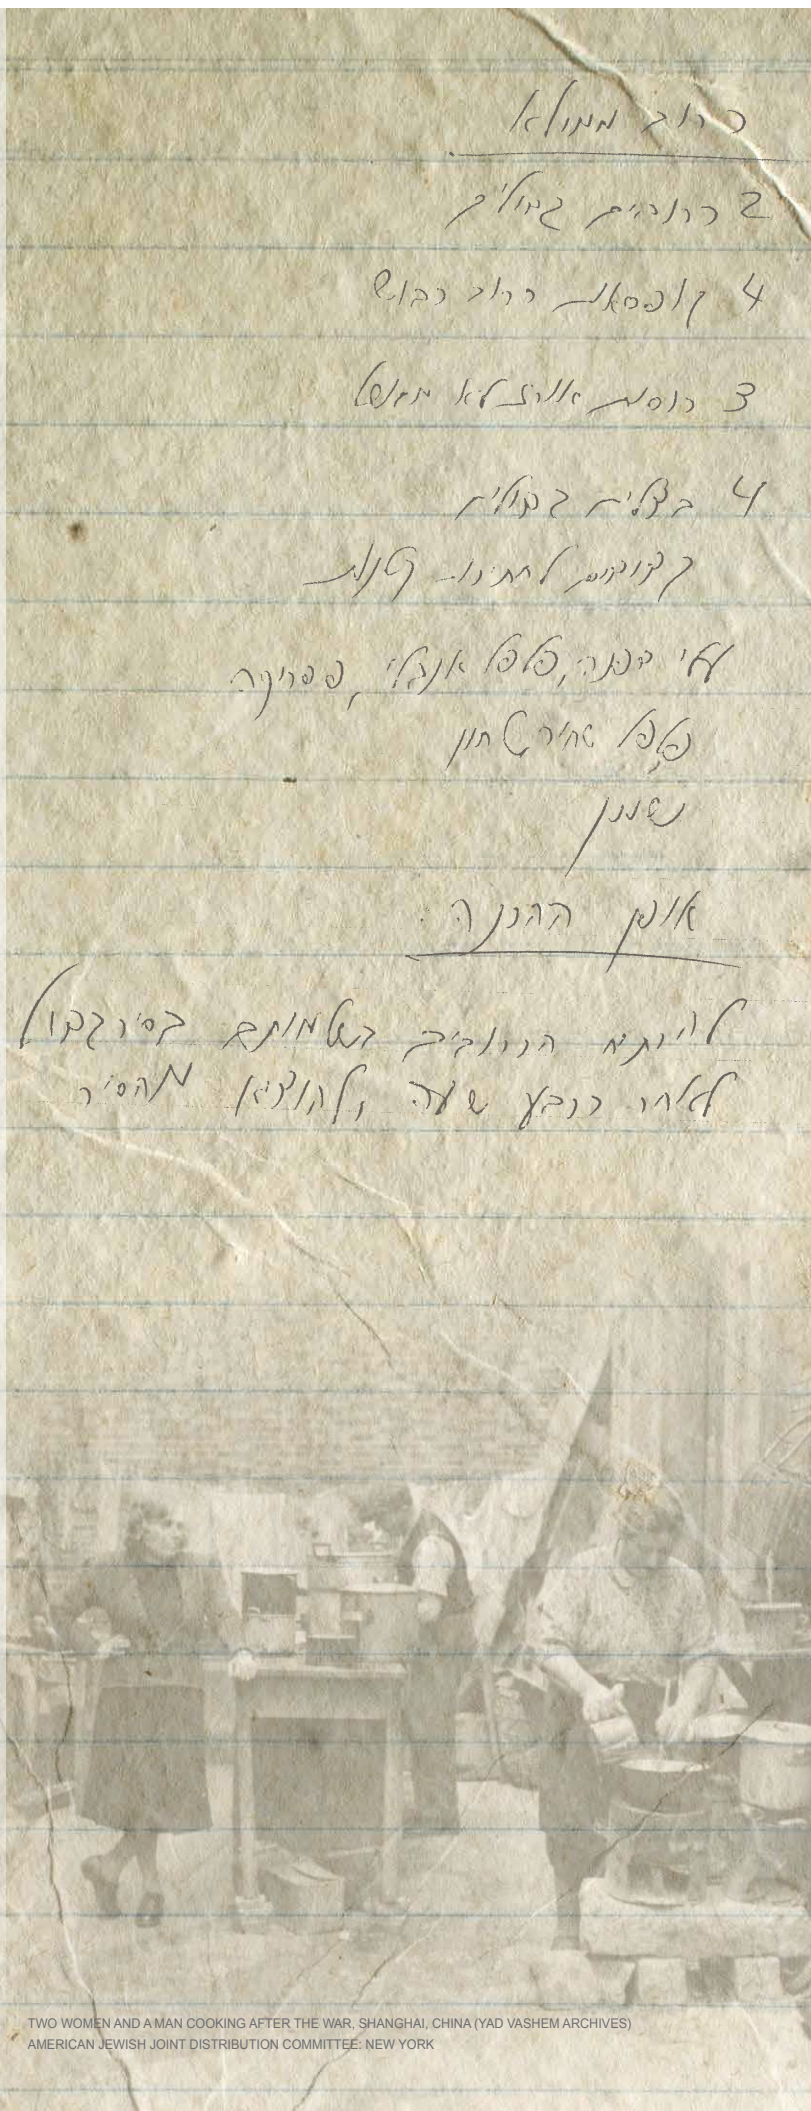 כרוב ממולא
2 כרובים גדולים
4 קופסאות כרוב כבוש
3 כוסות אורז לא מבושל
4 בצלים גדולים
קצוצים לחתיכות קטנות
עלי דפנה, פלפל אנגלי, פפריקה
פלפל שחור טחון
שומן
אופן ההכנה
הכרובים בשלמותם בסיר גדול
לאחר רבע שעה להוציא מהסיר
TWO WOMEN AND A MAN COOKING AFTER THE WAR, SHANGHAI, CHINA (YAD VASHEM ARCHIVES)
AMERICAN JEWISH JOINT DISTRIBUTION COMMITTEE: NEW YORK